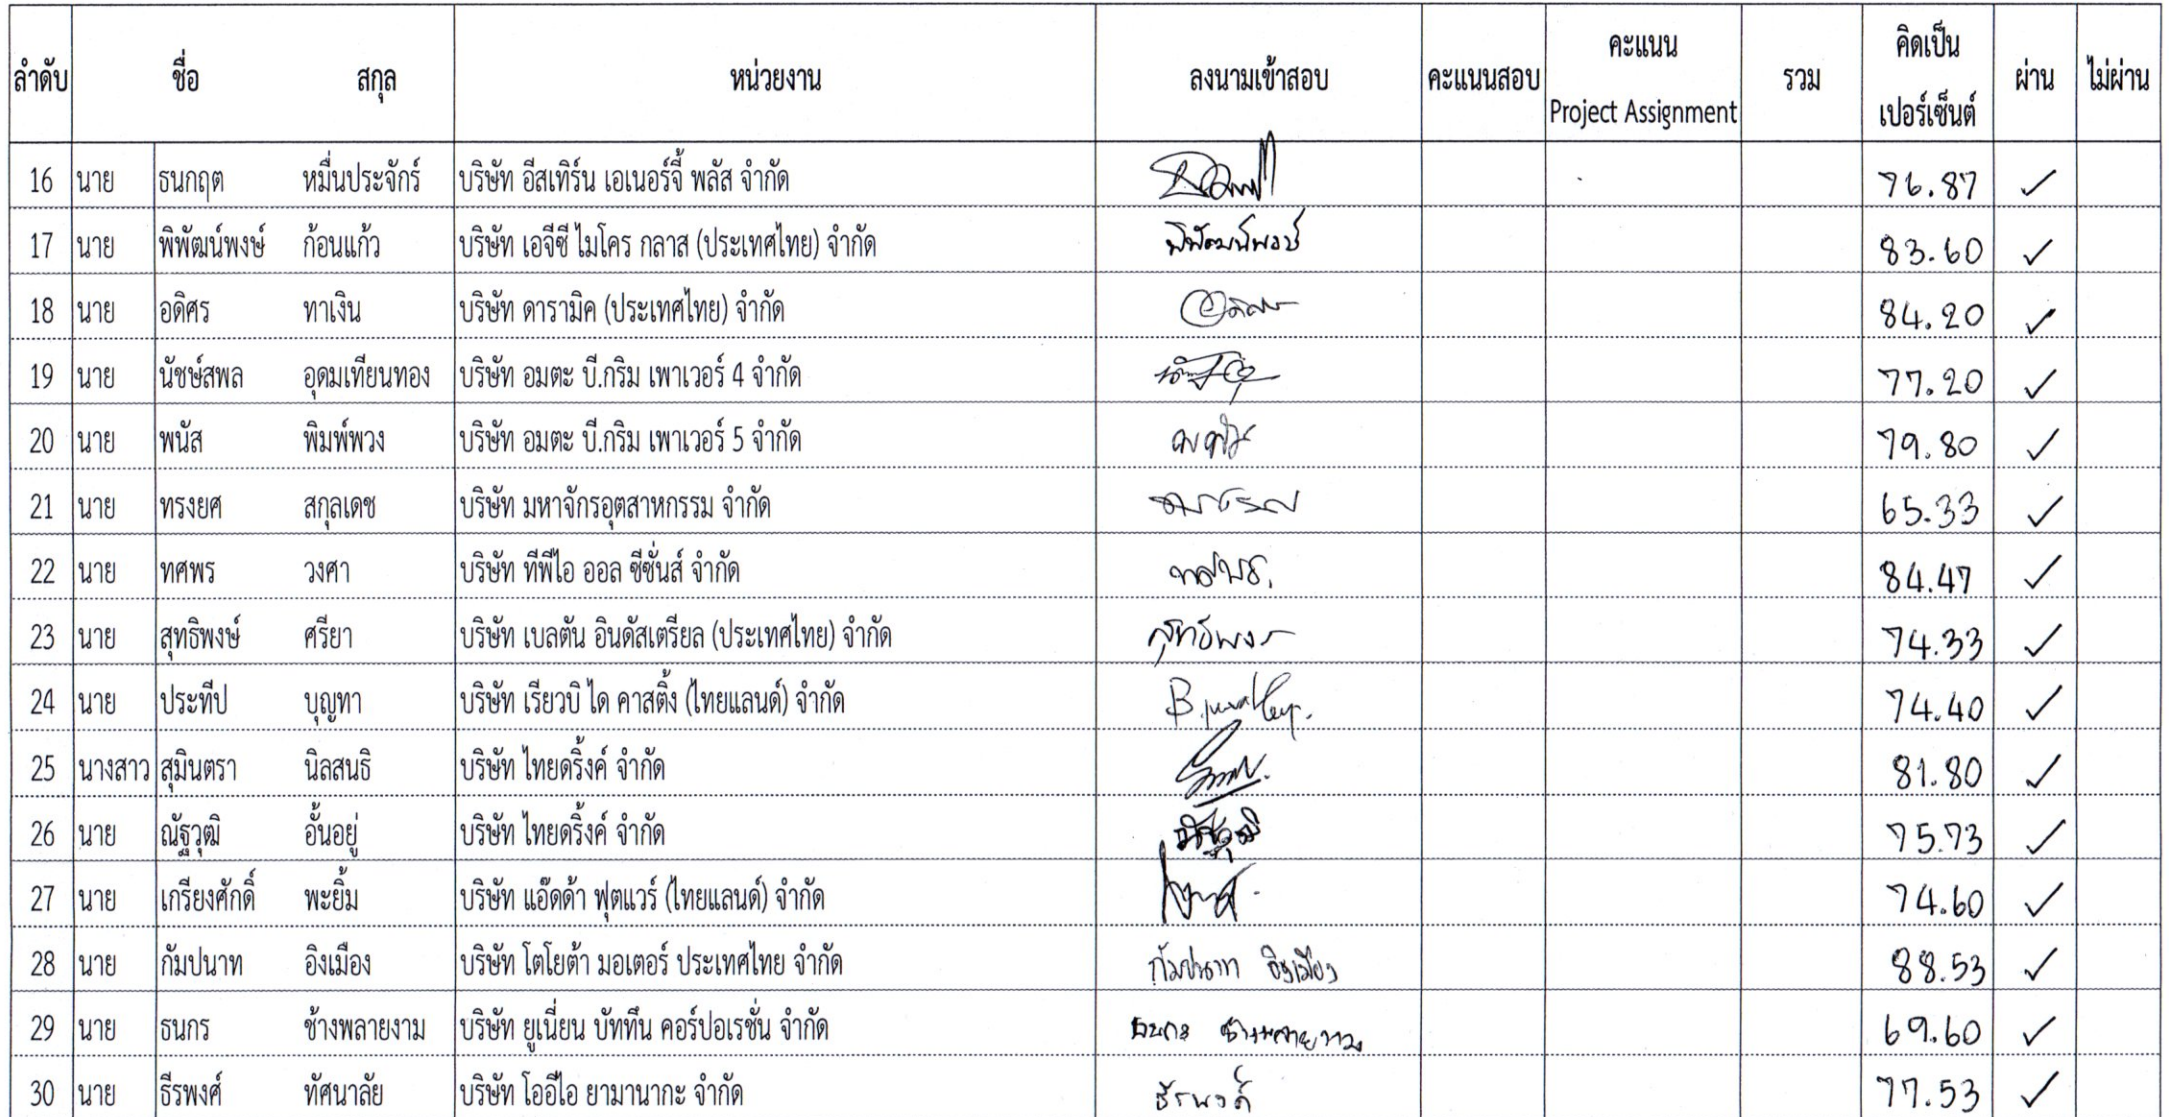 ลำดับ ชื่อ สกุล หน่วยงาน ลงนามเข้าสอบ คะแนนสอบ คะแนน Project Assignment รวม คิดเป็น เปอร์เซ็นต์ ผ่าน ไม่ผ่าน
16 นาย ธนกฤต หมื่นประจักร์ บริษัท อีสเทิร์น เอเนอร์จี้ พลัส จำกัด 76.87 ✓
17 นาย พิพัฒน์พงษ์ ก้อนแก้ว บริษัท เอจีซี ไมโคร กลาส (ประเทศไทย) จำกัด พิพัฒน์พงษ์ 83.60 ✓
18 นาย อดิศร ทาเงิน บริษัท ดารามิค (ประเทศไทย) จำกัด 84.20 ✓
19 นาย นัชษ์สพล อุดมเทียนทอง บริษัท อมตะ บี.กริม เพาเวอร์ 4 จำกัด 77.20 ✓
20 นาย พนัส พิมพ์พวง บริษัท อมตะ บี.กริม เพาเวอร์ 5 จำกัด 79.80 ✓
21 นาย ทรงยศ สกุลเดช บริษัท มหาจักรอุตสาหกรรม จำกัด 65.33 ✓
22 นาย ทศพร วงศา บริษัท ทีพีไอ ออล ซีซั่นส์ จำกัด 84.47 ✓
23 นาย สุทธิพงษ์ ศรียา บริษัท เบลตัน อินดัสเตรียล (ประเทศไทย) จำกัด 74.33 ✓
24 นาย ประทีป บุญทา บริษัท เรียวบิ ได คาสติ้ง (ไทยแลนด์) จำกัด 74.40 ✓
25 นางสาว สุมินตรา นิลสนธิ บริษัท ไทยดริ้งค์ จำกัด 81.80 ✓
26 นาย ณัฐวุฒิ อั้นอยู่ บริษัท ไทยดริ้งค์ จำกัด ณัฐวุฒิ 75.73 ✓
27 นาย เกรียงศักดิ์ พะยิ้ม บริษัท แอ๊ดด้า ฟุตแวร์ (ไทยแลนด์) จำกัด 74.60 ✓
28 นาย กัมปนาท อิงเมือง บริษัท โตโยต้า มอเตอร์ ประเทศไทย จำกัด กัมปนาท อิงเมือง 88.53 ✓
29 นาย ธนกร ช้างพลายงาม บริษัท ยูเนี่ยน บัททึน คอร์ปอเรชั่น จำกัด ธนกร ช้างพลายงาม 69.60 ✓
30 นาย ธีรพงศ์ ทัศนาลัย บริษัท โออีไอ ยามานากะ จำกัด ธีรพงศ์ 77.53 ✓